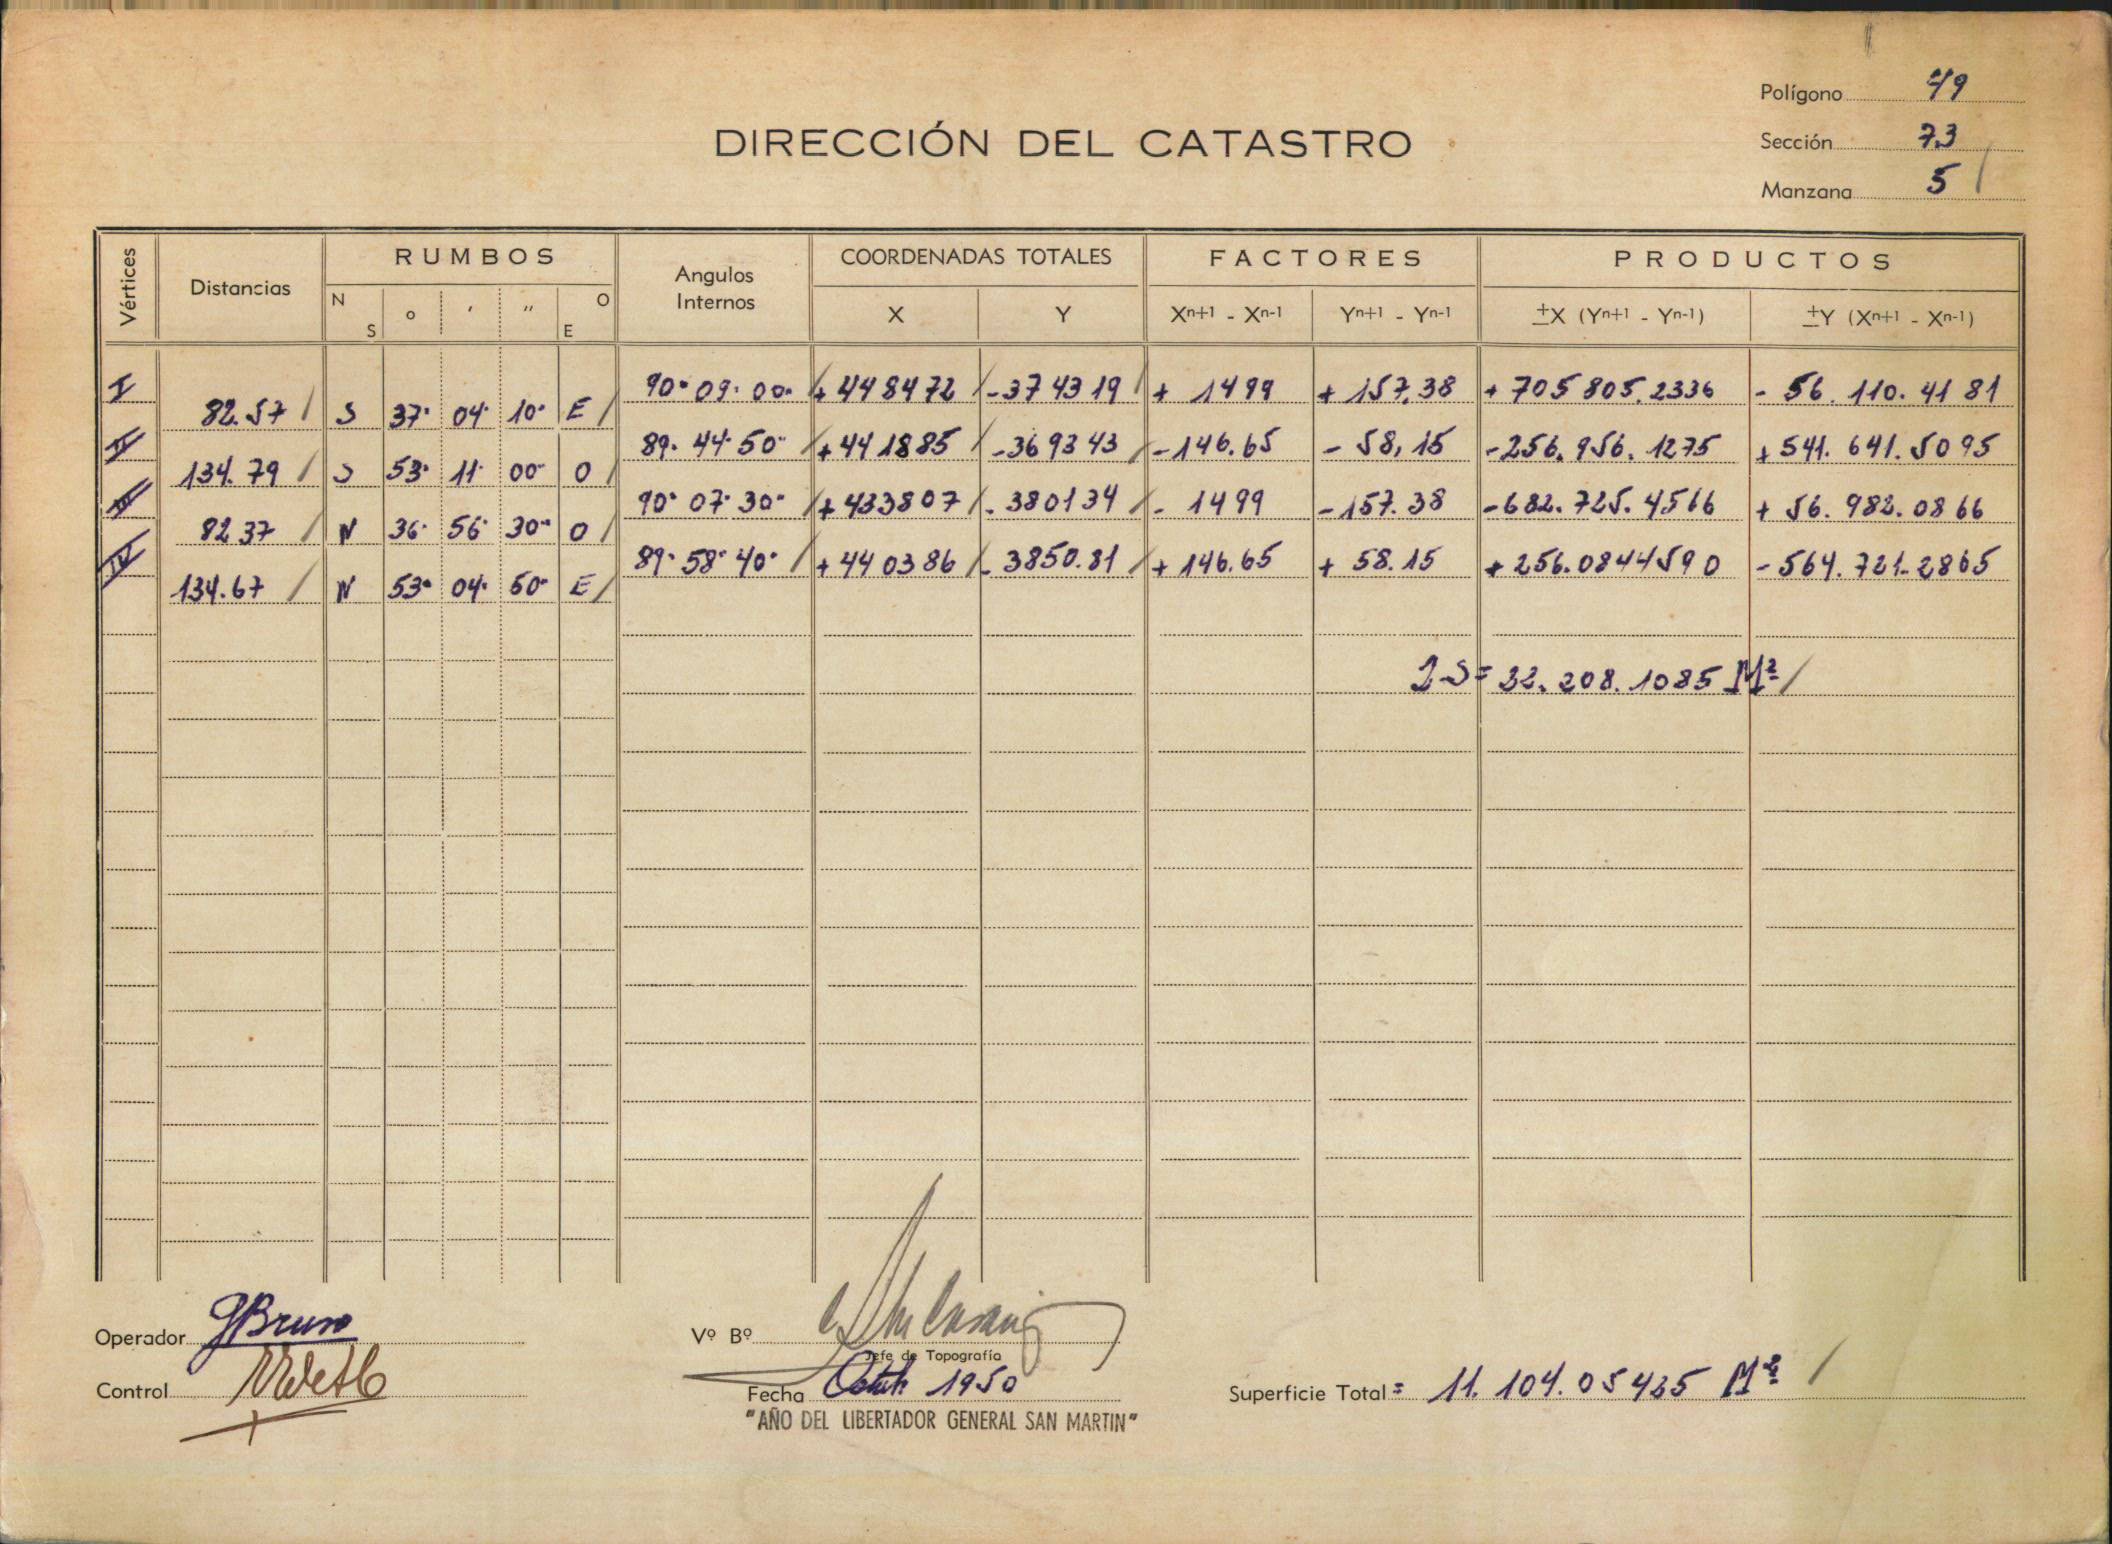 Polígono 49
DIRECCIÓN DEL CATASTRO
Sección 73
Manzana 5
Vértices Distancias RUMBOS Angulos Internos COORDENADAS TOTALES FACTORES PRODUCTOS
N S ° ′ ″ O E X Y Xⁿ⁺¹ - Xⁿ⁻¹ Yⁿ⁺¹ - Yⁿ⁻¹ ±X (Yⁿ⁺¹ - Yⁿ⁻¹) ±Y (Xⁿ⁺¹ - Xⁿ⁻¹)
I 90° 09' 00" + 448472 - 374319 + 1499 + 157.38 + 705805.2336 - 56.110.4181
82.57 S 37° 04' 10" E
II 89° 44' 50" + 441885 - 369343 - 146.65 - 58,15 - 256.956.1275 + 541.641.5095
134.79 S 53° 11' 00" O
III 90° 07' 30" + 433807 - 380134 - 1499 - 157.38 - 682.725.4566 + 56.982.0866
82 37 N 36° 56' 30" O
IV 89° 58' 40" + 440386 - 3850.81 + 146.65 + 58.15 + 256.0844590 - 564.721.2865
134.67 N 53° 04' 50" E
2S = 22.208.1085 M²
Operador GBruno
Vº Bº
Jefe de Topografía
Control
Fecha 1950
Superficie Total = 11.104.05425 M²
"AÑO DEL LIBERTADOR GENERAL SAN MARTIN"